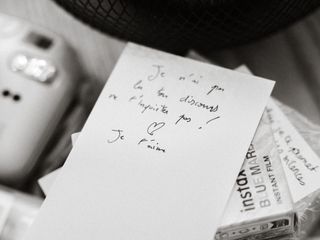 Je n'ai pu
lu ton discours
ne t'inquiète pas !
♡
Je t'aime
instax
BLUE MAR
INSTANT FILM